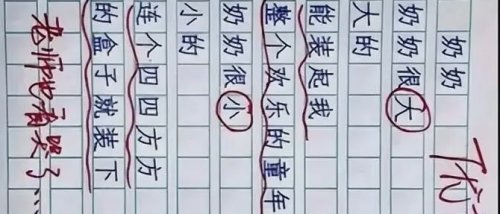 优
奶奶
奶奶很大
大的
能装起我
整个欢乐的童年
奶奶很小
小的
连个四四方方
的盒子就装下
老师也看哭了…